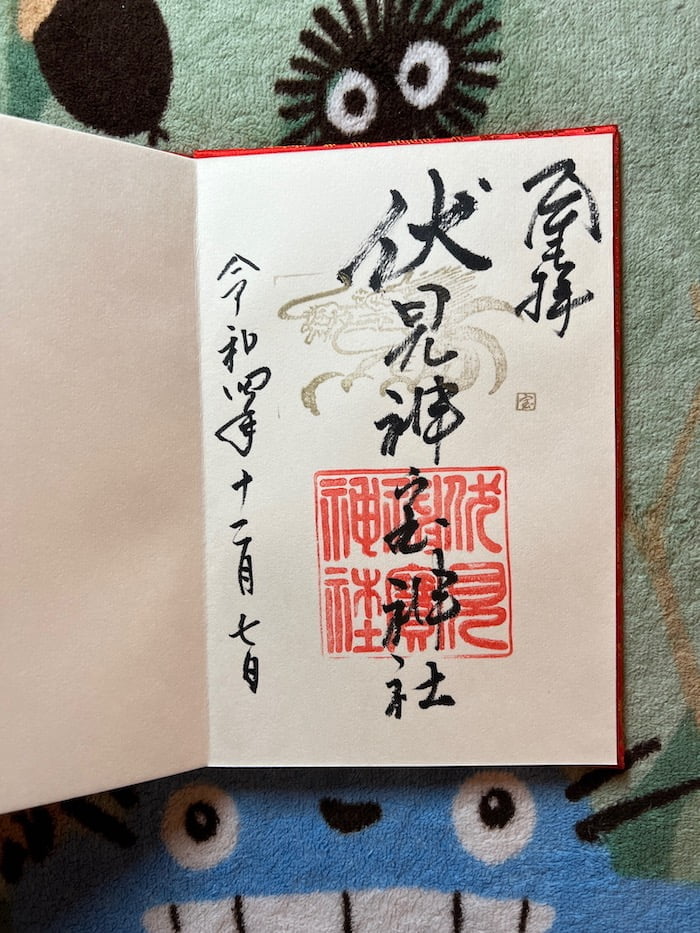 拝
伏見神宝神社
伏見
神寶
神社
宝
令和四年十二月七日